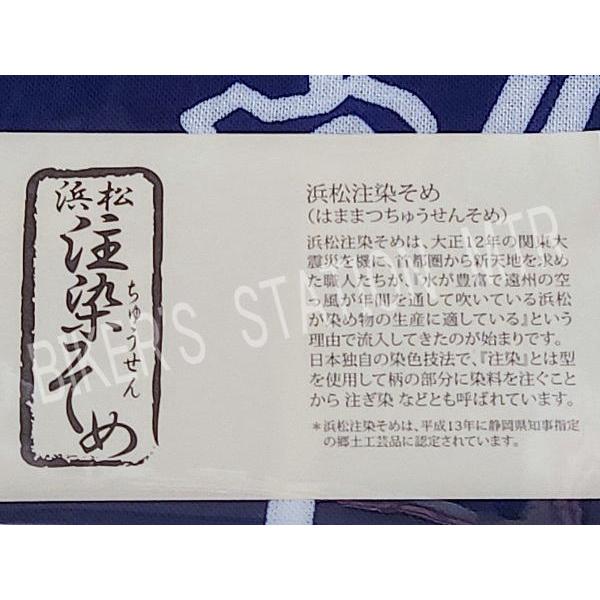 浜松
注染そめ
ちゅうせん
浜松注染そめ
(はままつちゅうせんそめ)
浜松注染そめは、大正12年の関東大
震災を機に、首都圏から新天地を求め
た職人たちが、『水が豊富で遠州の空
っ風が年間を通して吹いている浜松
が染め物の生産に適している』という
理由で流入してきたのが始まりです。
日本独自の染色技法で、『注染』とは型
を使用して柄の部分に染料を注ぐこと
から 注ぎ染 などとも呼ばれています。
*浜松注染そめは、平成13年に静岡県知事指定
の郷土工芸品に認定されています。
BIKER'S STATION MTR